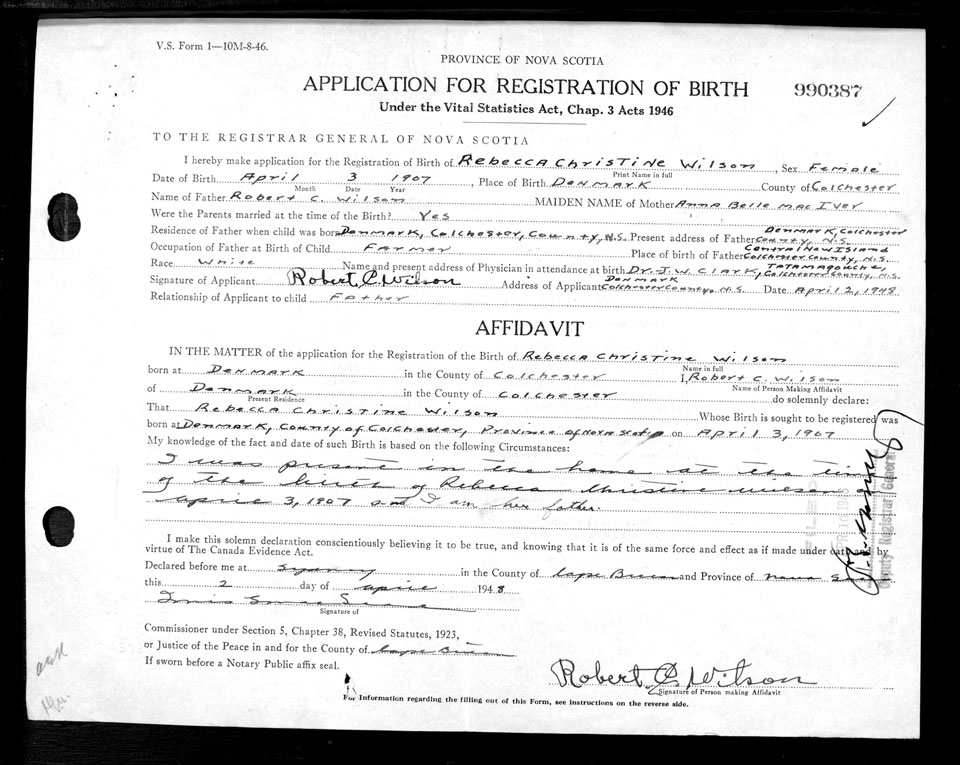 V.S. Form 1—10M-8-46.
PROVINCE OF NOVA SCOTIA
APPLICATION FOR REGISTRATION OF BIRTH
990387
Under the Vital Statistics Act, Chap. 3 Acts 1946
TO THE REGISTRAR GENERAL OF NOVA SCOTIA
I hereby make application for the Registration of Birth of Rebecca Christine Wilson, Sex Female
Print Name in full
Date of Birth April 3 1907, Place of Birth Denmark County of Colchester
Month Date Year
Name of Father Robert C. Wilson MAIDEN NAME of Mother Anna Belle MacIver
Were the Parents married at the time of the Birth? Yes
Residence of Father when child was born Denmark, Colchester, County, N.S. Present address of Father Denmark, Colchester County, N.S.
Occupation of Father at Birth of Child Farmer Place of birth of Father Central New Island Colchester County, N.S.
Race White Name and present address of Physician in attendance at birth Dr. J. W. Clark, Tatamagouche, Colchester County, N.S.
Signature of Applicant Robert C. Wilson Address of Applicant Denmark Colchester County, N.S. Date April 2, 1948
Relationship of Applicant to child Father
AFFIDAVIT
IN THE MATTER of the application for the Registration of the Birth of Rebecca Christine Wilson
Name in full
born at Denmark in the County of Colchester I, Robert C. Wilson
Name of Person Making Affidavit
of Denmark in the County of Colchester do solemnly declare:
Present Residence
That Rebecca Christine Wilson Whose Birth is sought to be registered was
born at Denmark, County of Colchester, Province of Nova Scotia on April 3, 1907
My knowledge of the fact and date of such Birth is based on the following Circumstances:
I was present in the home at the time
of the birth of Rebecca Christine Wilson on
April 3, 1907 and I am her father.
I make this solemn declaration conscientiously believing it to be true, and knowing that it is of the same force and effect as if made under oath and by
virtue of The Canada Evidence Act.
Declared before me at Sydney in the County of Cape Breton and Province of Nova Scotia
this 2 day of April 1948
Signature of
Commissioner under Section 5, Chapter 38, Revised Statutes, 1923,
or Justice of the Peace in and for the County of Cape Breton
If sworn before a Notary Public affix seal.
Robert C. Wilson
Signature of Person making Affidavit
For Information regarding the filling out of this Form, see instructions on the reverse side.
FILED
Deputy Registrar General